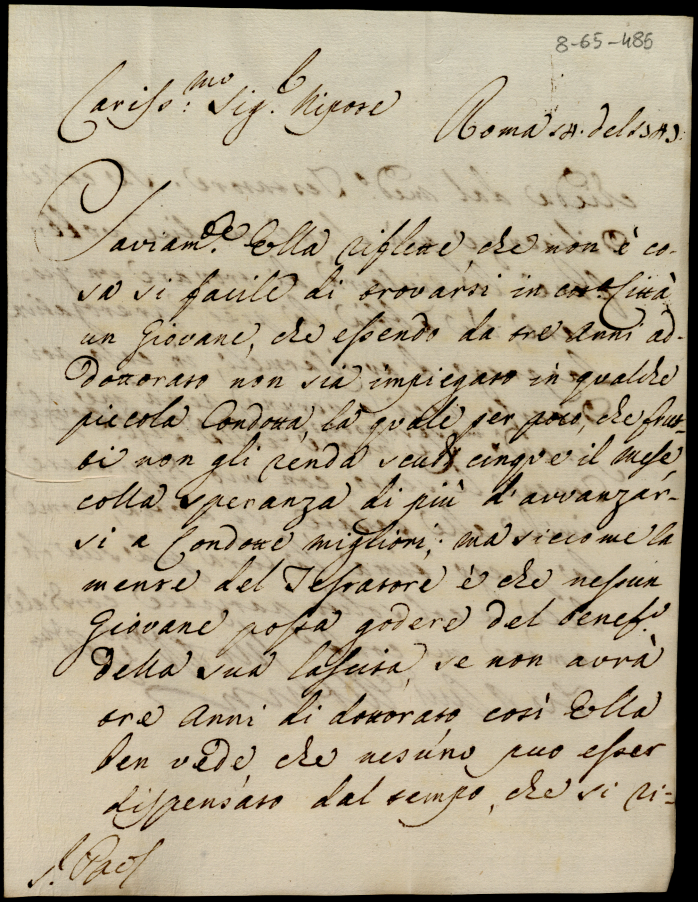 8-65-486
Cariss:mo Sig.r Nipote
Roma
Saviam.te Ella riflette, che non è co-
sa si facile di trovarsi in cot.a Città
un Giovane, che essendo da tre Anni ad-
dottorato non sia impiegato in qualche
piccola Condotta, la quale per poco, che frut-
ti non gli renda scudi cinque il Mese
colla speranza di più d'avvanzar-
si a Condotte migliori; ma siccome la
mente del Testatore è che nessun
Giovane possa godere del benef.o
della sua lascita, se non avrà
tre Anni di dottorato, così Ella
ben vede che nesuno può esser
dispensato dal tempo, che si ri=